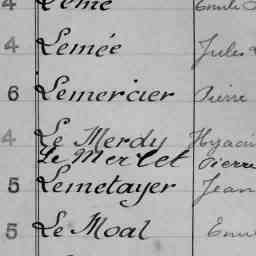 4 Lemé Emile
4 Lemée Jules
6 Lemercier Pierre
4 Le Merdy Hyacin
Le Merlet Pierre
5 Lemetayer Jean
5 Le Moal